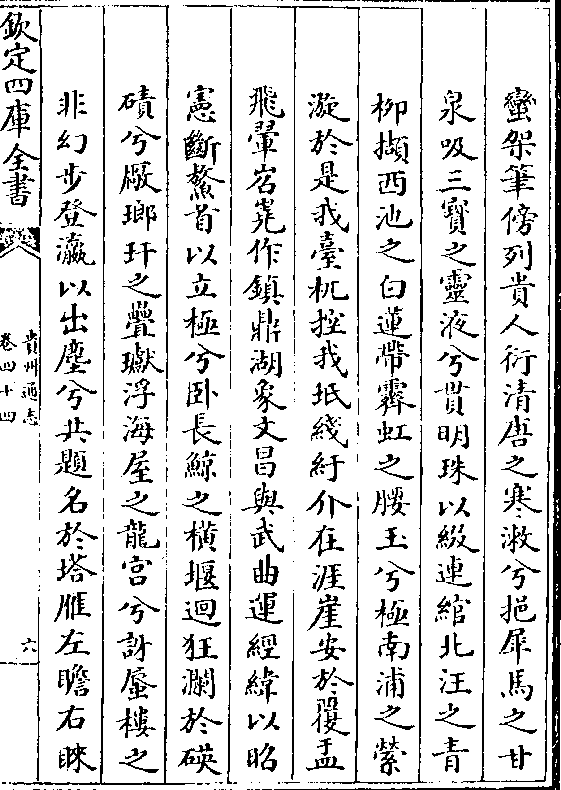 蠻架筆傍列貴人衍清唐之寒潄兮挹犀馬之甘
泉吸三寳之靈液兮貫明珠以綴連綰北汪之青
柳擷西池之白蓮帶霽虹之腰玉兮極南浦之縈
漩於是我臺杌挃我坻綫紆介在涯崖安於覆盂
飛翬宕嵬作鎮鼎湖象文昌與武曲運經緯以昭
憲斷鰲首以立極兮卧長鯨之橫堰迴狂瀾於磢
磧兮厰瑯玕之疊巘浮海屋之龍宮兮訝蜃樓之
非幻步登瀛以出塵兮共題名於塔雁左瞻右睞
欽定四庫全書
貴州通志
卷四十四
六